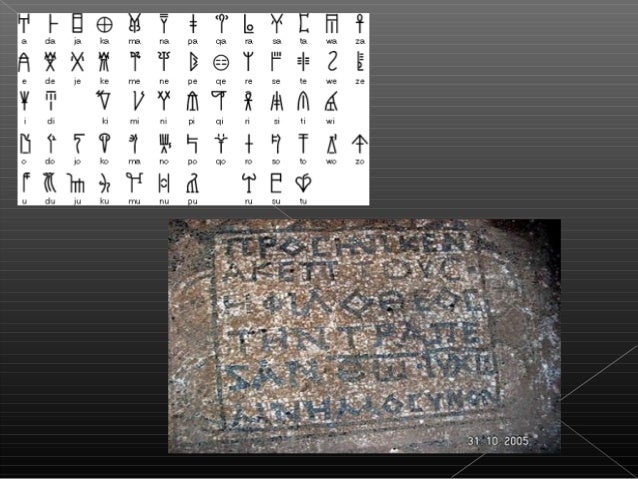 𐀀 𐀅 𐀊 𐀏 𐀔 𐀙 𐀞 𐀣 𐀨 𐀭 𐀲 𐀷 𐀼
a da ja ka ma na pa qa ra sa ta wa za
𐀁 𐀆 𐀋 𐀐 𐀕 𐀚 𐀟 𐀤 𐀩 𐀮 𐀳 𐀸 𐀽
e de je ke me ne pe qe re se te we ze
𐀂 𐀇 𐀑 𐀖 𐀛 𐀠 𐀥 𐀪 𐀯 𐀴 𐀹
i di ki mi ni pi qi ri si ti wi
𐀃 𐀈 𐀍 𐀒 𐀗 𐀜 𐀡 𐀦 𐀫 𐀰 𐀵 𐀺 𐀿
o do jo ko ma no po qo ro so to wo zo
𐀄 𐀉 𐀎 𐀓 𐀘 𐀝 𐀢 𐀬 𐀱 𐀶
u du ju ku mu nu pu ru su tu
ΠΡΟCΗΝΙΚΕΝ
ΑΚΕΠΤΟΥC
Η ΦΙΛΟΘΕΟC
ΤΗΝ ΤΡΑΠΕ
ΖΑΝ ΘΩ ΙΥ ΧΩ
ΜΝΗΜΟCΥΝΟΝ
31. 10. 2005